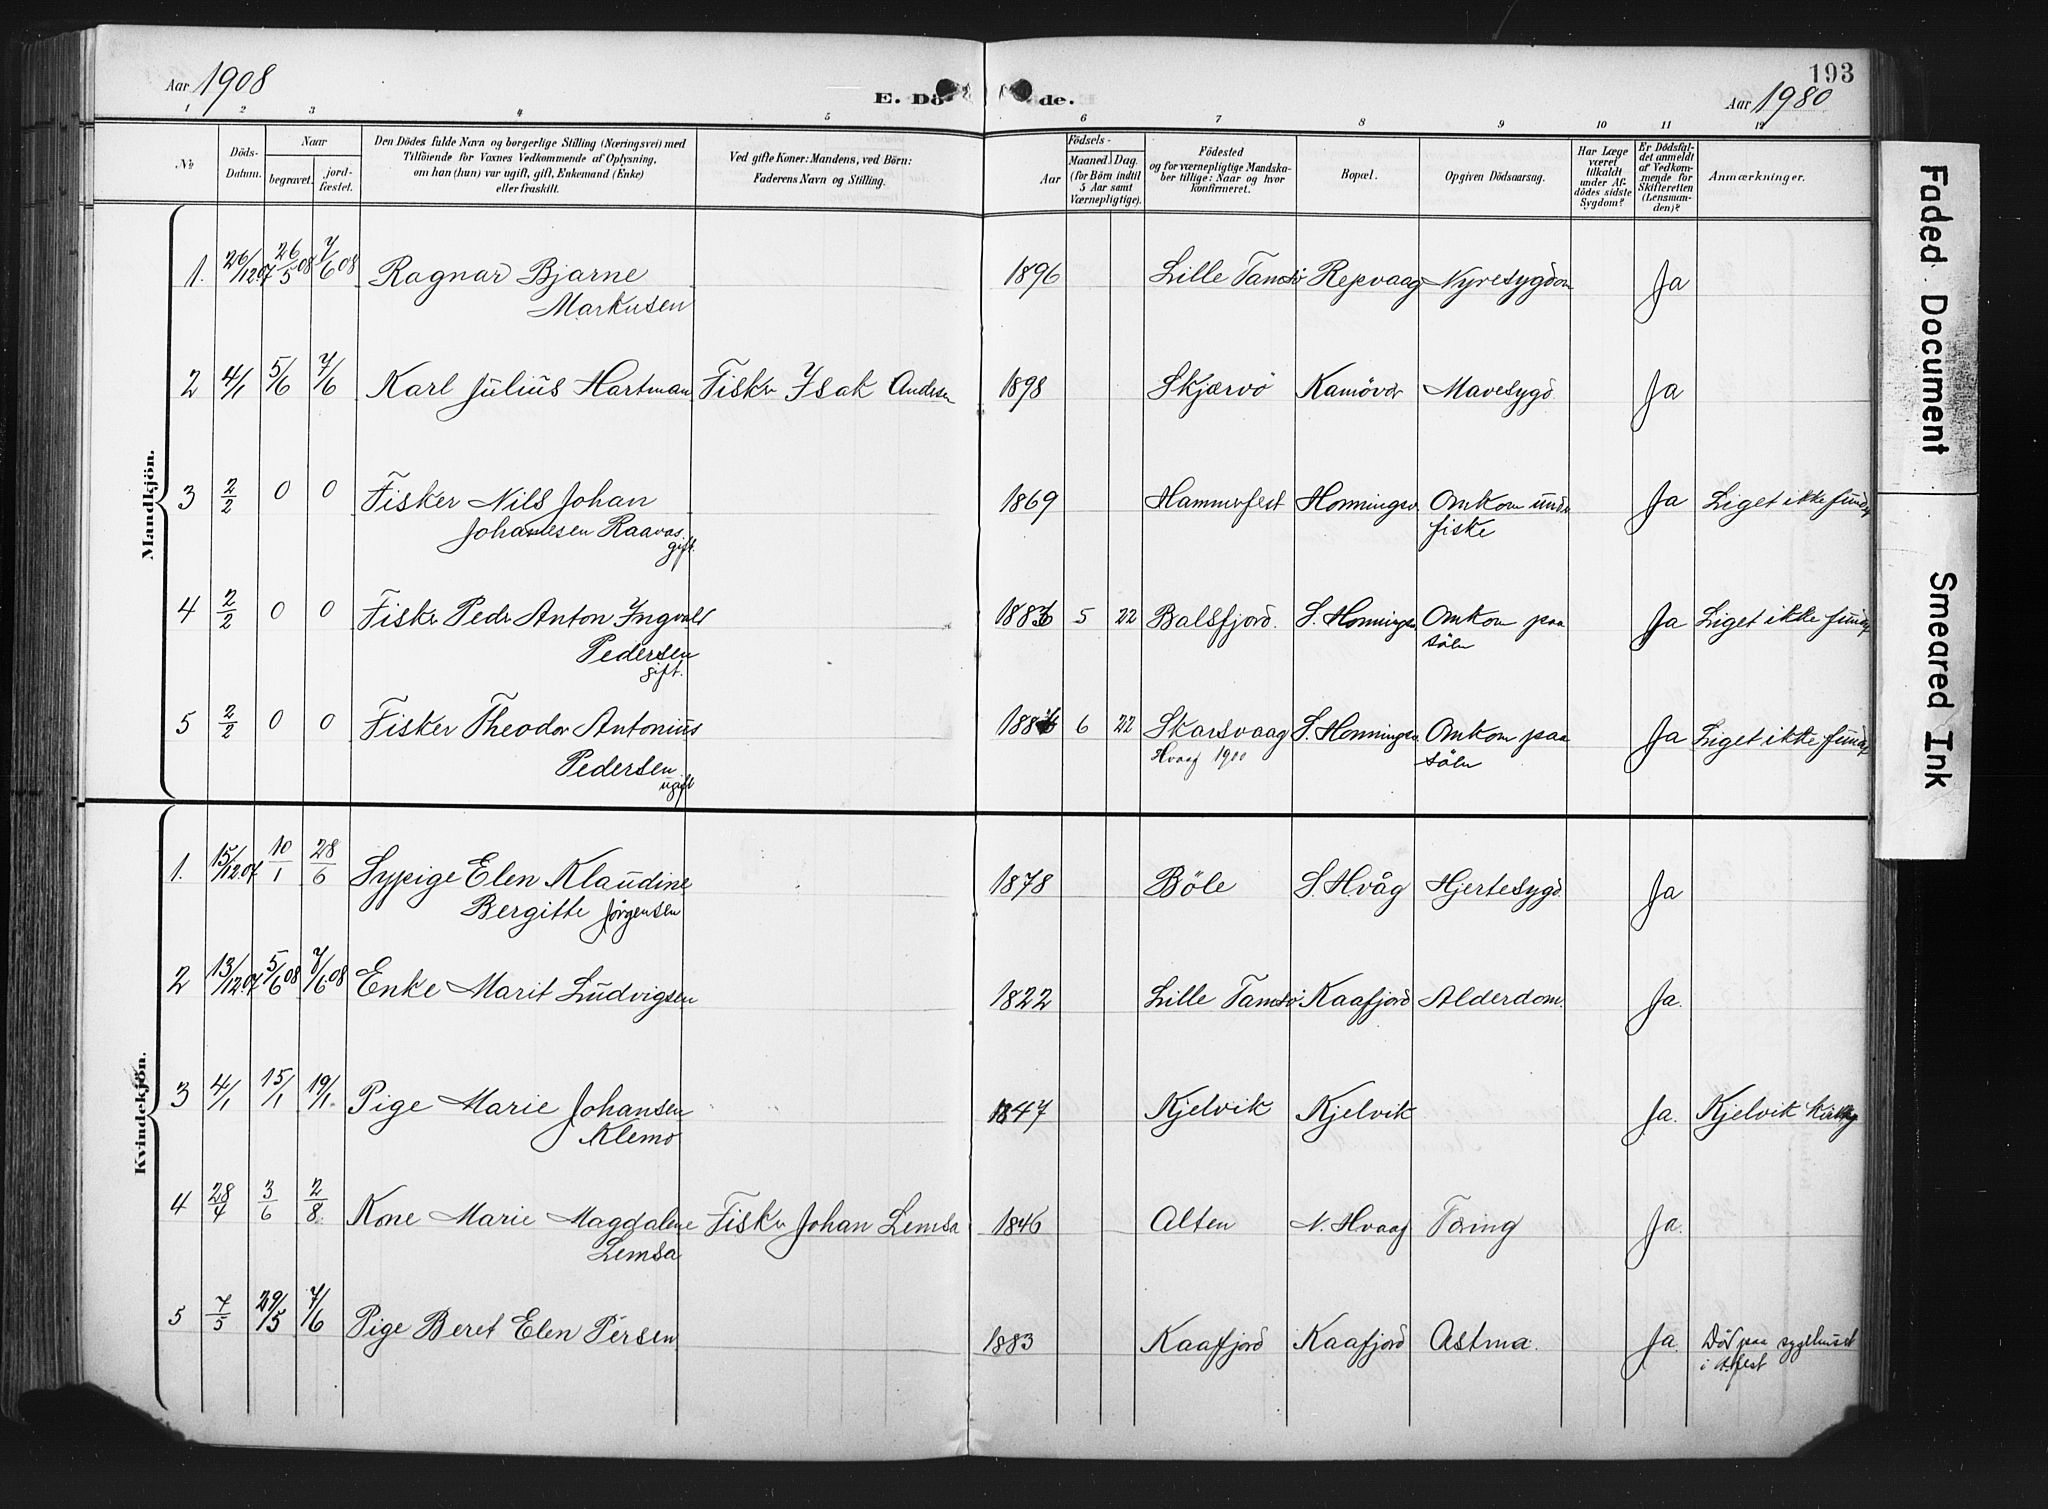 Aar 1908
E. Dö de.
193
Aar 1980
1 2 3 4 5 6 7 8 9 10 11 12
No
Döds-
Datum.
Naar
begravet.
jord-
fæstet.
Den Dödes fulde Navn og borgerlige Stilling (Næringsvei) med
Tilföiende for Voxnes Vedkommende af Oplysning,
om han (hun) var ugift, gift, Enkemand (Enke)
eller fraskilt.
Ved gifte Koner: Mandens, ved Börn:
Faderens Navn og Stilling.
Födsels-
Aar
Maaned. Dag.
(for Börn indtil
5 Aar samt
Værnepligtige).
Födested
og for værnepligtige Mandska-
ber tillige: Naar og hvor
konfirmeret.
Bopæl.
Opgiven Dödsaarsag.
Har Læge
været
tilkaldt
under Af-
dödes sidste
Sygdom?
Er Dödsfal-
det anmeldt
af Vedkom-
mende for
Skifteretten
(Lensman-
den)?
Anmærkninger.
Mandkjön.
1. 26/12.07 26/5 08 7/6 08 Ragnar Bjarne 1896 Lille Tamsö Repvaag Nyresygdom Ja
Markusen
2 4/1 5/6 7/6 Karl Julius Hartman Fisker Isak Andersen 1898 Skjærvö Kamövær Mavesygd. Ja
3 2/2 0 0 Fisker Nils Johan 1869 Hammerfest Honningsv. Omkom under Ja Liget ikke fundet
Johannesen Raavas. fiske
gift.
4 2/2 0 0 Fisker Peder Anton Ingvald 1886 5 22 Balsfjord. S. Honningsv. Omkom paa Ja Liget ikke fundet
Pedersen söen
gift.
5 2/2 0 0 Fisker Theodor Antonius 1886 6 22 Skarsvaag S. Honningsv. Omkom paa Ja Liget ikke fundet
Pedersen Hvaag 1900 söen
ugift
Kvindekjön.
1. 15/12.07 10/1 28/6 Sypige Elen Klaudine 1878 Böle S. Hvåg Hjertesygd. Ja
Bergitte Jörgensen
2 13/12.07 5/6 08 7/6.08 Enke Marit Ludvigsen 1822 Lille Tamsö Kaafjord Alderdom. Ja.
3 4/1 15/1 19/1 Pige Marie Johansen 1847 Kjelvik Kjelvik Ja. Kjelvik
Klemo
4 28/4 3/6 2/8 Kone Marie Magdalene Fisker Johan Lemsa 1846 Alten N. Hvaag Tæring Ja.
Lemsa
5 7/5 29/5 7/6 Pige Beret Elen Persen 1883 Kaafjord Kaafjord Astma. Ja. Död paa sygehuset
i Hfest
Faded Document
Smeared Ink